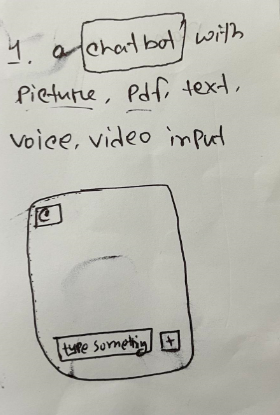 4. a chatbot with
picture, pdf, text,
voice, video input
C
type someting +